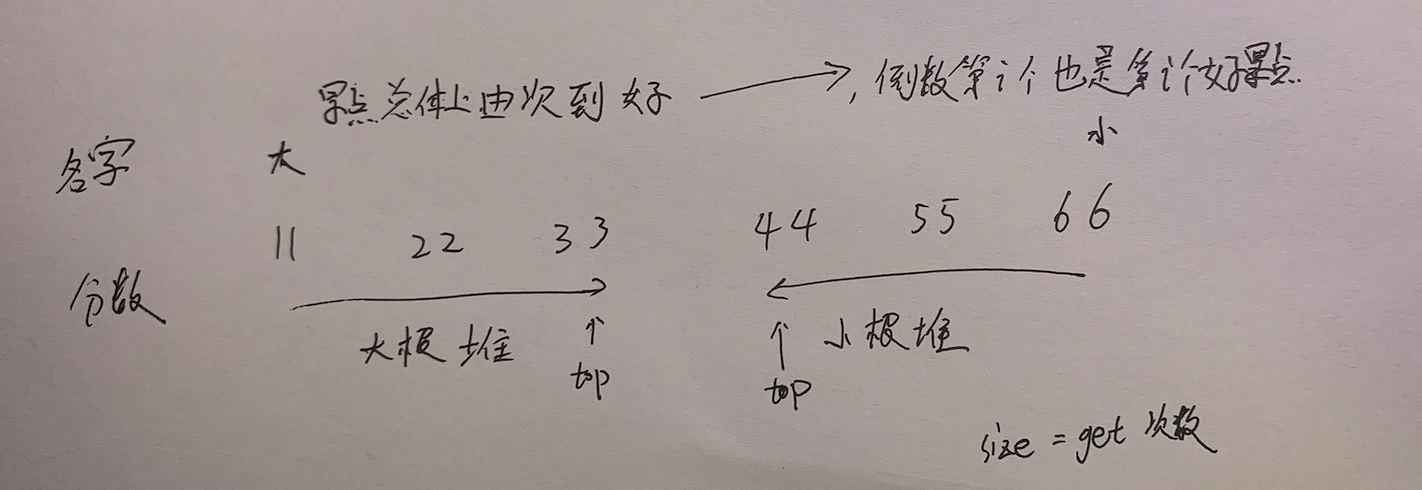 景点总体上由次到好 → ，倒数第i个也是第i个好景点.
名字 大 小
11 22 33 44 55 66
分数
大根堆 ↑ ↑ 小根堆
top top
size = get 次数